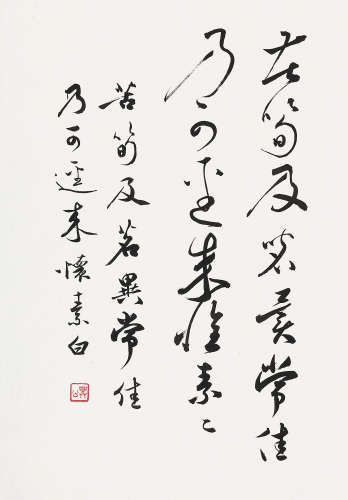 苦筍及茗異常佳
乃可逕来懷素白
苦筍及茗異常佳
乃可逕来懷素白